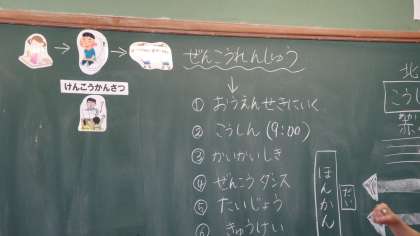 ぜんこうれんしゅう
けんこうかんさつ
① おうえんせきにいく
② こうしん (9:00)
③ かいかいしき
④ ぜんこうダンス
⑤ たいじょう
⑥ せいけい
ほんかん
だい
北
こうし